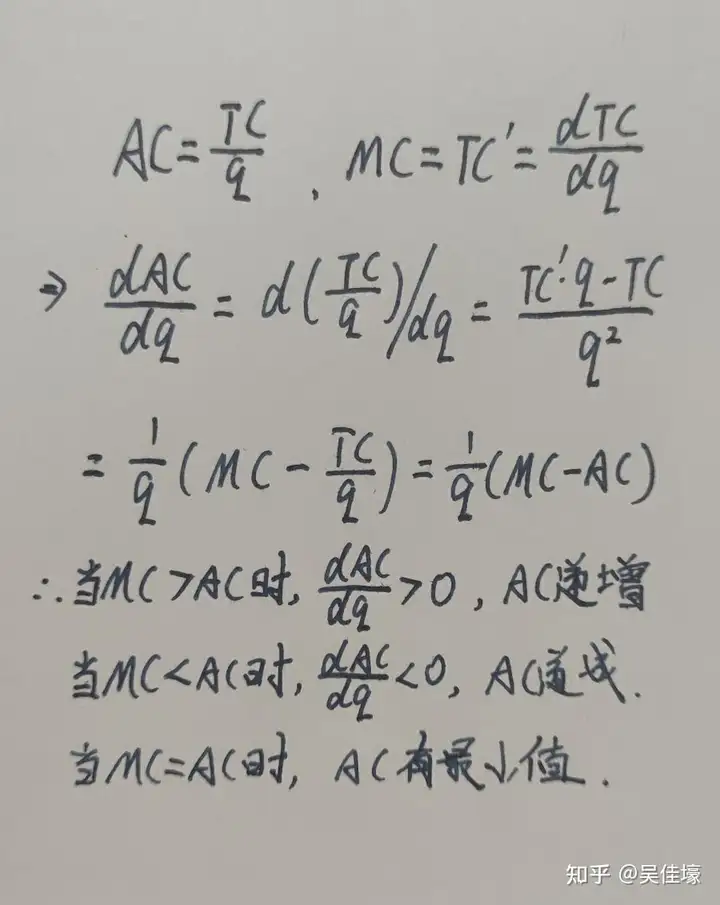 AC = TC/q , MC = TC' = dTC/dq
⇒ dAC/dq = d(TC/q)/dq = (TC'·q - TC)/q²
= 1/q (MC - TC/q) = 1/q (MC-AC)
∴当MC>AC时, dAC/dq >0, AC递增
当MC<AC时, dAC/dq <0, AC递减.
当MC=AC时, AC有最小值.
知乎 @吴佳壕